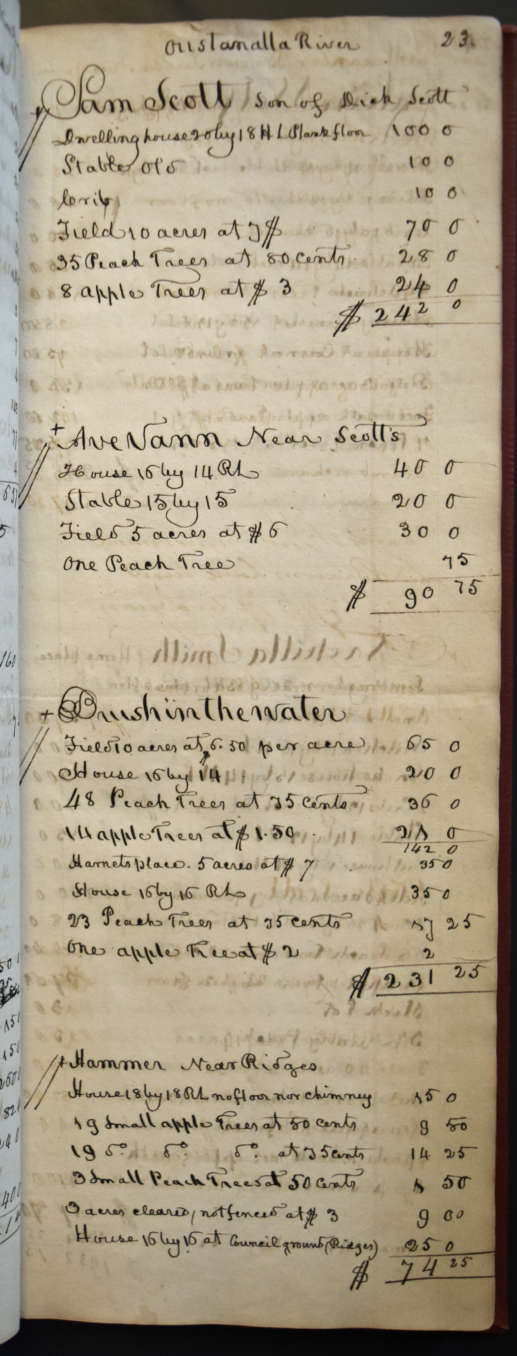 Oustanalla River 23.
Sam Scott Son of Dick Scott
Dwelling house 20 by 18 H L Plank floor 100 0
Stable old 10 0
Crib 10 0
Field 10 acres at 7$ 70 0
35 Peach Trees at 80 cents 28 0
8 apple Trees at $ 3 24 0
$ 242 0
+ Ave Vann Near Scott's
House 16 by 14 RL 40 0
Stable 15 by 15 20 0
Field 5 acres at $6 30 0
One Peach Tree 75
$ 90 75
+ Brushinthewater
Field 10 acres at 6.50 per acre 65 0
House 16 by 14 20 0
48 Peach Trees at 75 cents 36 0
14 apple Trees at $1.50 21 0
142 0
Harnets place. 5 acres at $ 7 35 0
House 16 by 16 RL 35 0
23 Peach Trees at 75 cents 17 25
One apple Tree at $ 2 2
$ 231 25
+ Hammer Near Ridges
House 18 by 18 RL no floor nor chimney 15 0
19 Small apple Trees at 50 cents 9 50
19 do do do at 75 cents 14 25
3 Small Peach Trees at 50 cents 1 50
3 acres cleared / not fenced at $ 3 9 00
House 16 by 16 at Council ground (Ridges) 25 0
$ 74 25